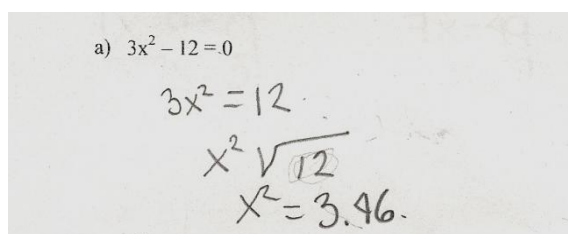 a) 3x² – 12 = 0
3x² = 12
x² √12
x² = 3.46.